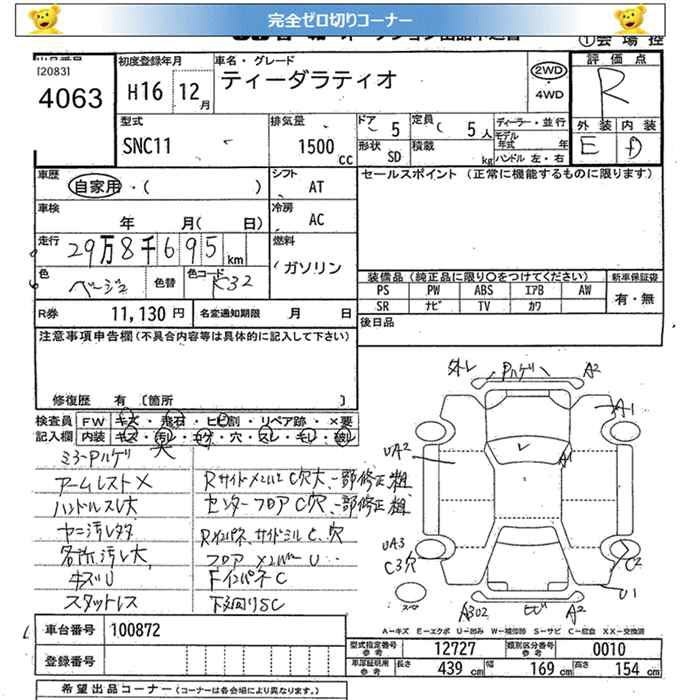 完全ゼロ切りコーナー
①会場控
[2083]
4063
初度登録年月
H16 12月
車名・グレード
ティーダラティオ
2WD
・
4WD
評価点
R
外装 内装
E D
型式
SNC11
排気量
1500cc
ドア 5
定員 ( 5人
形状 SD
積載 kg
ディーラー・並行
モデル年式 年
ハンドル 左・右
車歴
自家用・( )
シフト
AT
セールスポイント (正常に機能するものに限ります)
車検
年 月( 日)
冷房
AC
走行
29万8千695km
燃料
ガソリン
色
ベージュ
色替
色コード
K32
装備品(純正品に限り○をつけてください)
新車保証書
PS PW ABS エアB AW
SR ナビ TV カワ
有・無
R券 11,130円
名変通知期限 月 日
後日品
注意事項申告欄(不具合内容等は具体的に記入して下さい)
修復歴 有 〔箇所 〕
検査員 FW キズ・飛石・ヒビ割・リペア跡・×要
記入欄 内装 キズ・汚レ・コゲ・穴・スレ・キレ・破レ
ミラーPハゲ
アームレスト×
Rサイドメンバー C穴大、一部修正粗
ハンドルスレ大
センターフロア C穴、一部修正粗
ヤニ汚レ
Rインパネ、サイドシル C、穴
各所汚レ大
フロア メンバー U
キズU
FインパネC
スタットレス
下廻りSC
外レ
Pハゲ
A2
A1
UA2
A1
UA3
C3穴
C2
U1
スペア
ヒビ
A2
A-キズ E-エクボ U-凹み W-補修跡 S-サビ C-腐食 XX-交換済
車台番号 100872
登録番号
型式指定番号 参考 12727
類別区分番号 参考 0010
車庫証明用 参考 長さ 439 cm 幅 169 cm 高さ 154 cm
希望出品コーナー(コーナーは各会場により異なります。)